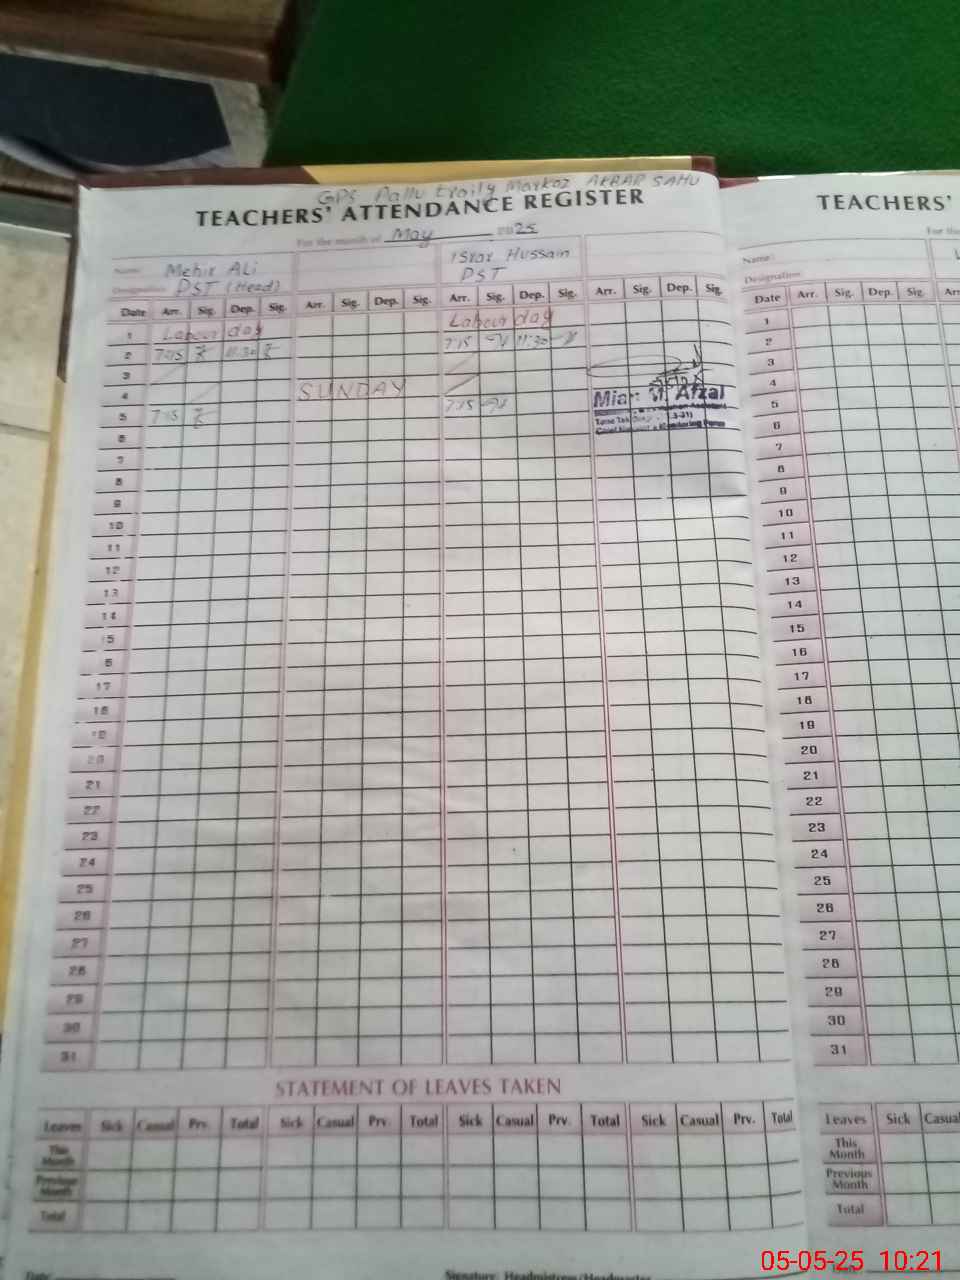 GPS Pallu Markaz AKBAR SAHU
TEACHERS' ATTENDANCE REGISTER
For the month of May 2025
Name: Mehir ALi Israr Hussain
Designation PST (Head) PST
Date Arr. Sig. Dep. Sig. Arr. Sig. Dep. Sig. Arr. Sig. Dep. Sig. Arr. Sig. Dep. Sig.
1 Labour day Labour day
2 7:15 11:30 7:15 11:30
3
4 SUNDAY
5 7:15 7:15
Mian M. Afzal
6
7
8
9
10
11
12
13
14
15
6
17
18
19
20
21
22
23
24
25
26
27
28
29
30
31
STATEMENT OF LEAVES TAKEN
Leaves Sick Casual Prv. Total Sick Casual Prv. Total Sick Casual Prv. Total Sick Casual Prv. Total
This Month
Previous Month
Total
Date:
Signature: Headmistress/Headmaster
TEACHERS'
For the
Name:
Designation
Date Arr. Sig. Dep. Sig. Arr
1
2
3
4
5
6
7
8
9
10
11
12
13
14
15
16
17
18
19
20
21
22
23
24
25
26
27
28
29
30
31
Leaves Sick Casual
This Month
Previous Month
Total
05-05-25 10:21